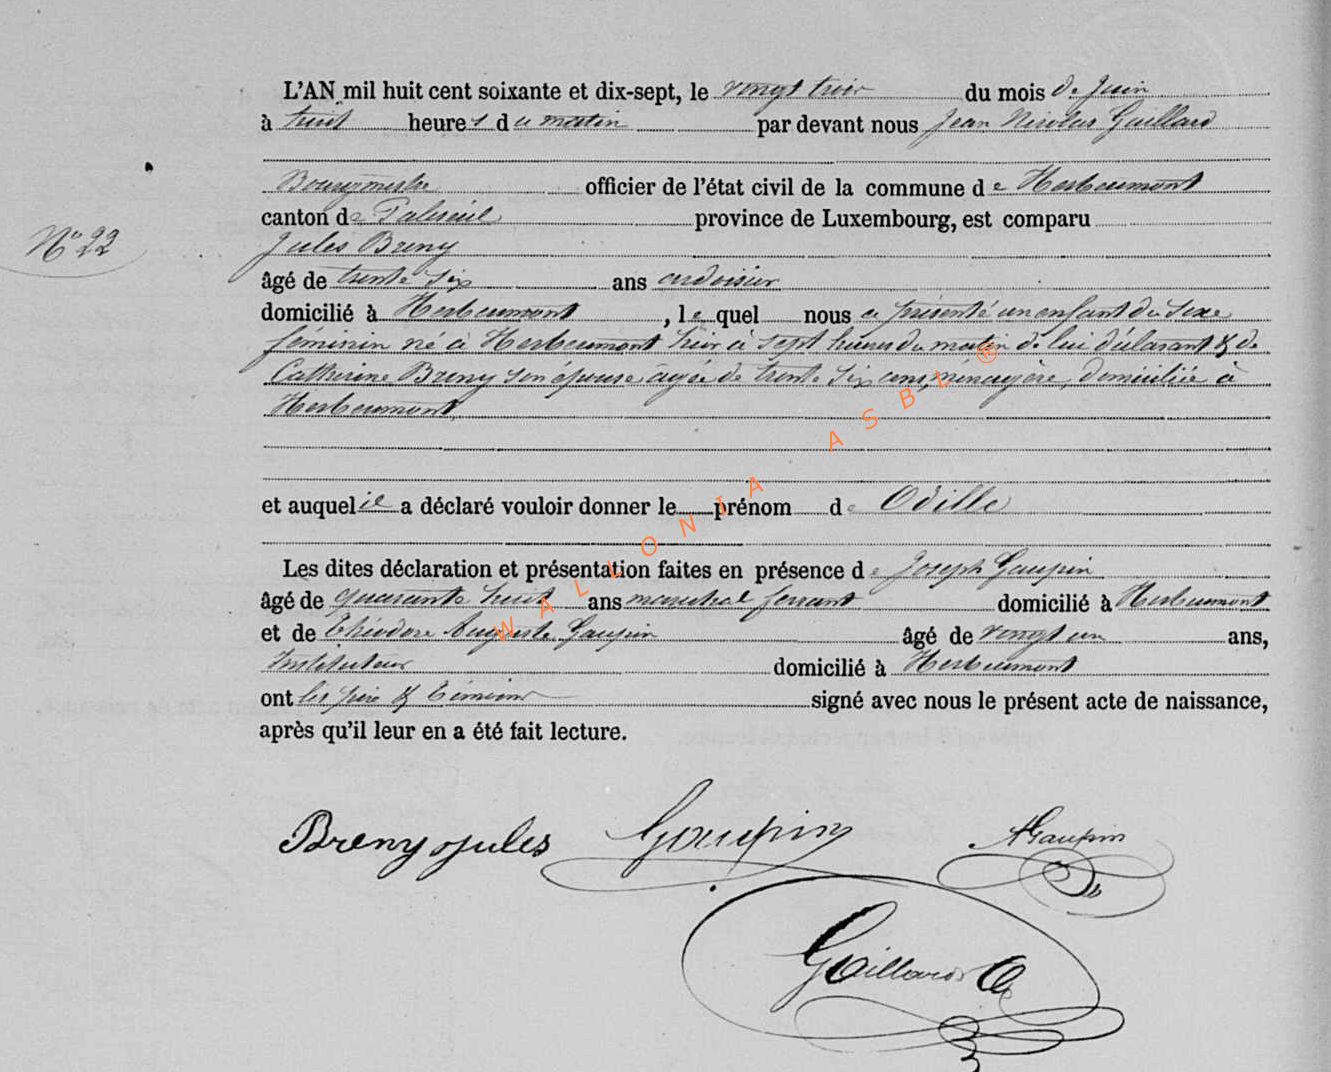 L'AN mil huit cent soixante et dix-sept, le vingt trois du mois de Juin
à huit heures du matin par devant nous Jean Nicolas Gaillard
Bourgmestre officier de l'état civil de la commune de Herbeumont
canton de Paliseul province de Luxembourg, est comparu
N° 22
Jules Breny
âgé de trente six ans ardoisier
domicilié à Herbeumont, lequel nous a présenté un enfant du sexe
féminin né à Herbeumont hier à sept heures du matin de lui déclarant & de
Catherine Breny son épouse agée de trente six ans, ménagère, domiciliée à
Herbeumont
et auquel il a déclaré vouloir donner le prénom de Odille
Les dites déclaration et présentation faites en présence de Joseph Gaupin
âgé de quarante huit ans maréchal ferrant domicilié à Herbeumont
et de Théodore Auguste Gaupin âgé de vingt un ans,
Instituteur domicilié à Herbeumont
ont les père & témoins signé avec nous le présent acte de naissance,
après qu'il leur en a été fait lecture.
Breny jules Gaupin AGaupin
Gaillard
WALLONIA ASBL ®